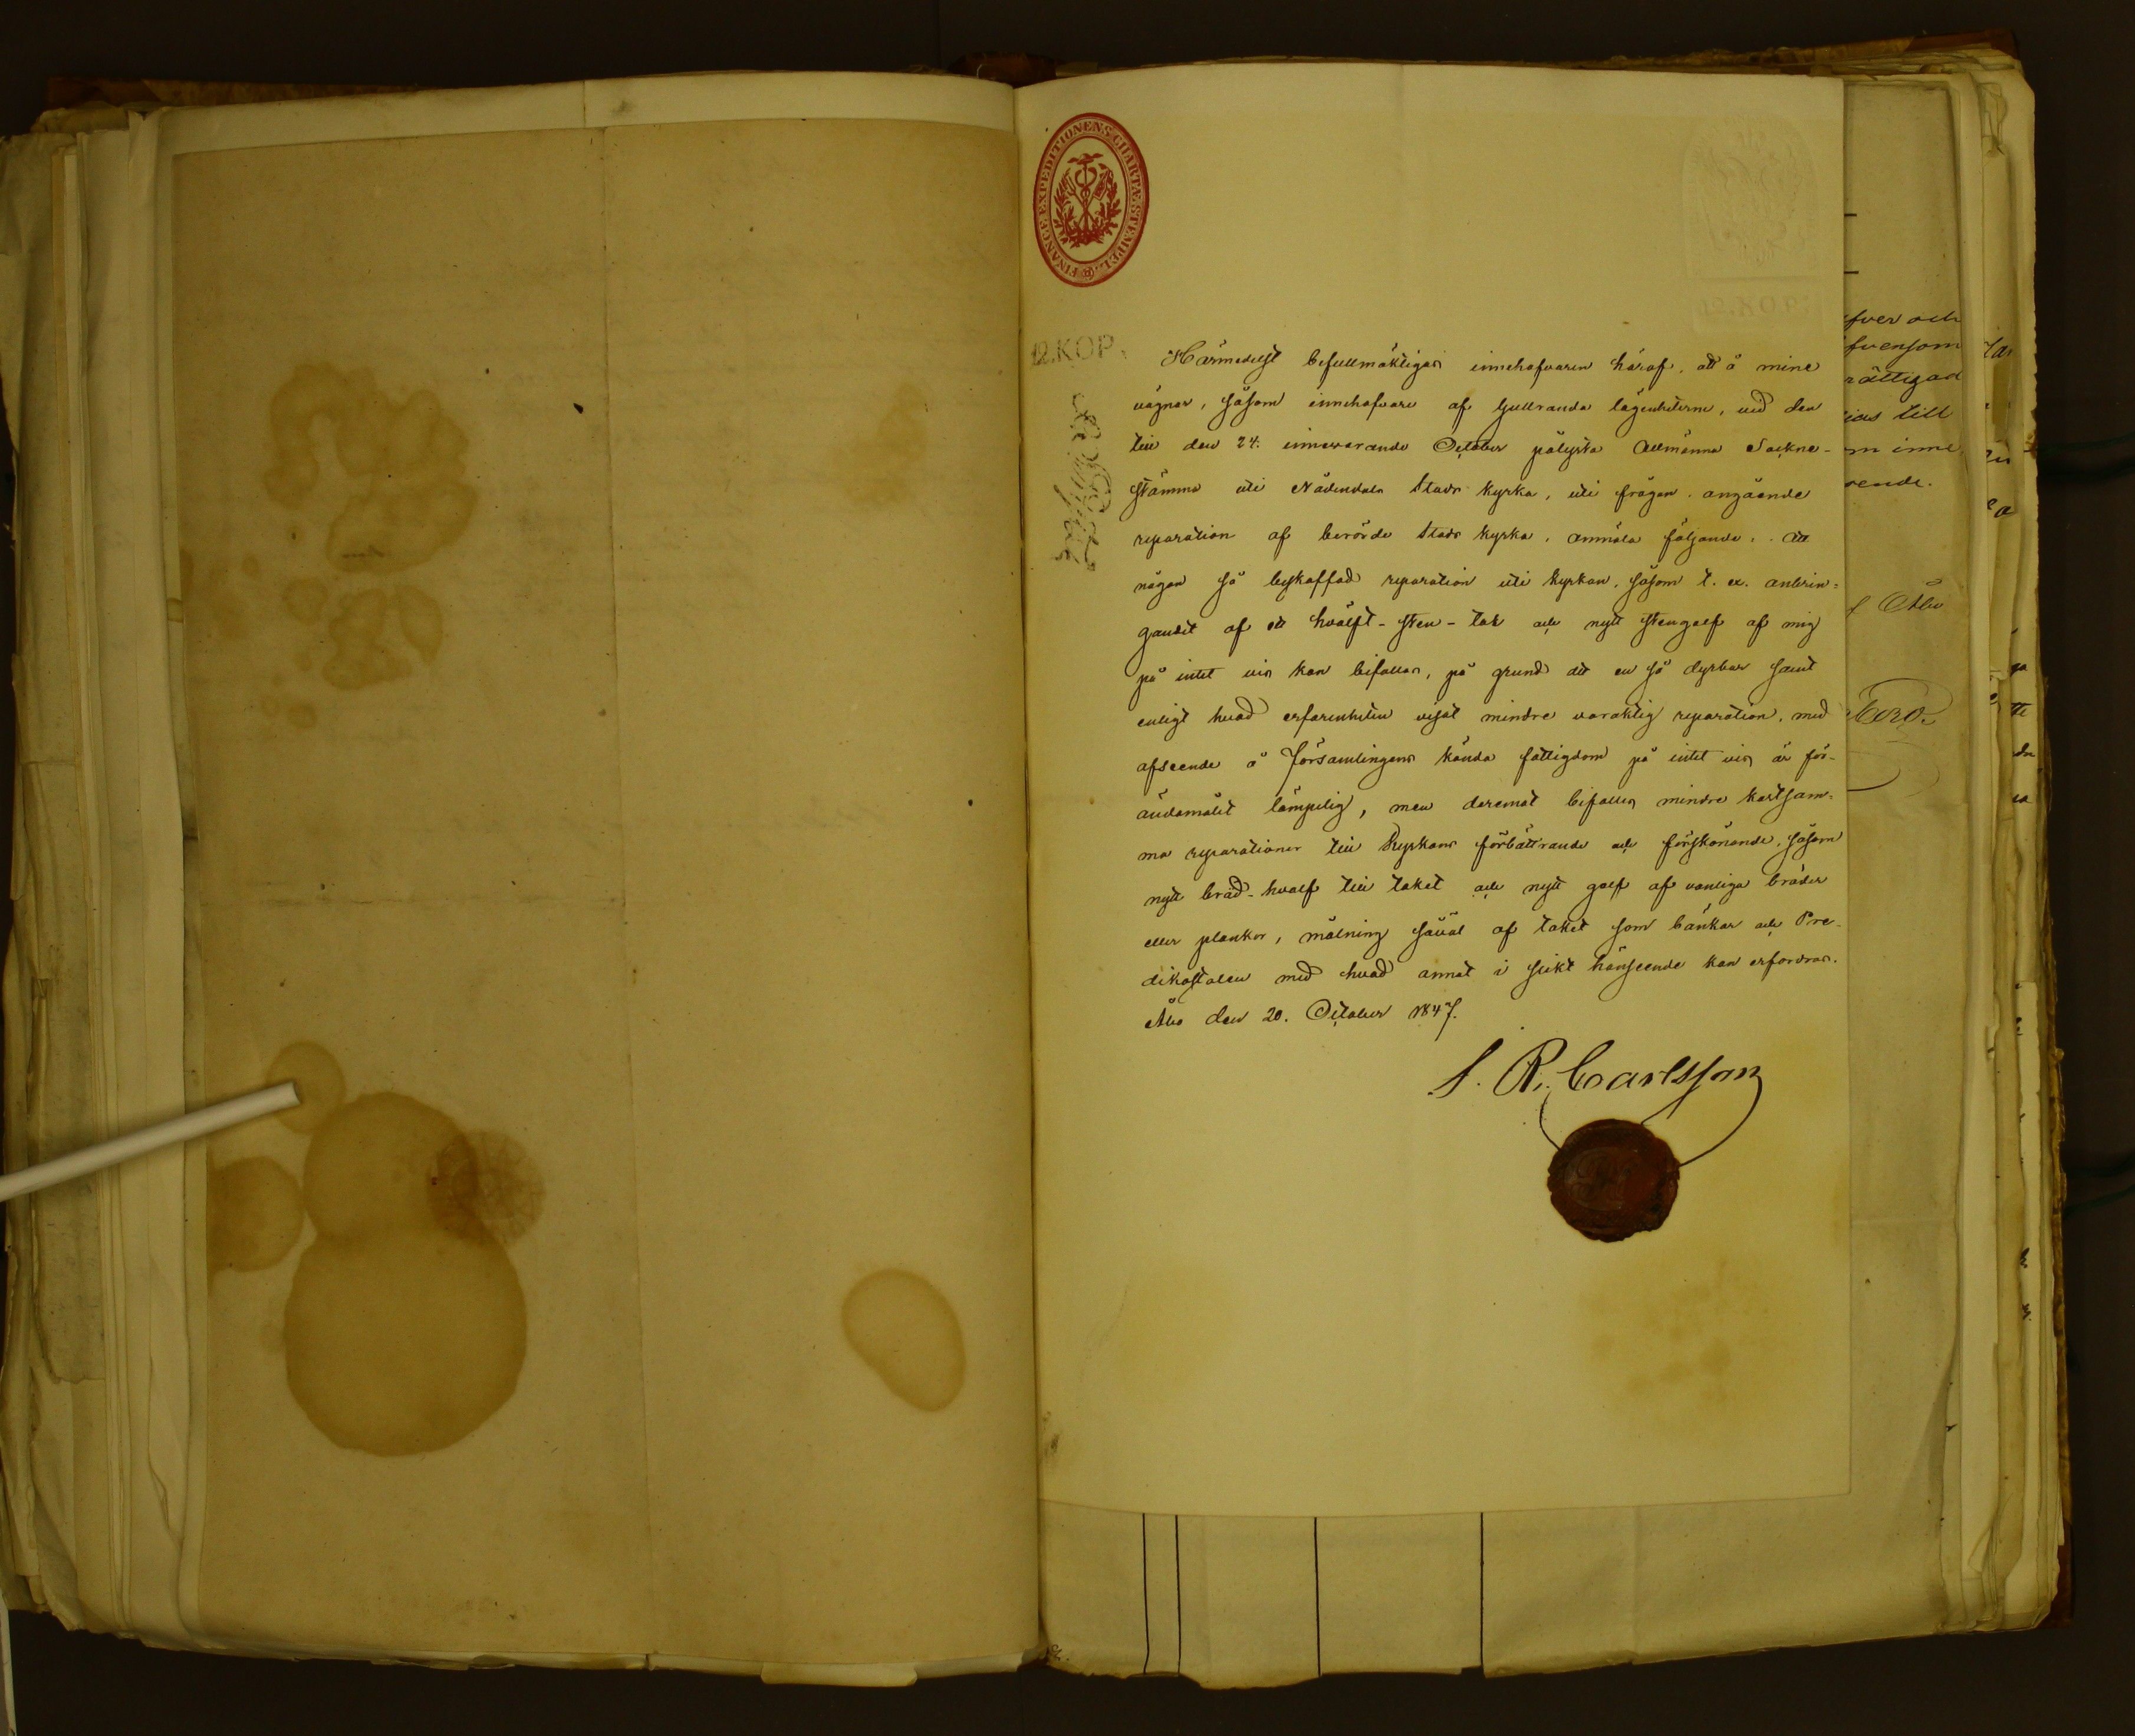 FINANCE EXPEDITIONENS CHARTÆ STEMPEL.
12.KOP.
Härmedelst befullmäktigas innehafvaren häraf, att å mine
vägnar, såsom innehafvare af Gullranda lägenheterne, vid den
till den 24. innevarande October pålysta Allmänna Sockne-
stämma uti Nådendals Stads kyrka, uti frågan angående
reparation af berörde Stads kyrka, anmäla följande: att
någon så beskaffad reparation uti kyrkan, såsom t. ex. anbrin-
gandet af ett hvälft-sten-tak och nytt stengolf af mig
på intet vis kan bifallas, på grund att en så dyrbar samt
enligt hvad erfarenheten visat mindre varaktig reparation, med
afseende å Församlingens kända fattigdom på intet vis är för
ändamålet lämpelig, men deremot bifalles mindre kostsam-
ma reparationer till Kyrkans förbättrande och förskönande, såsom
nytt bräd-hvalf till taket och nytt golf af vanliga bräder
eller plankor, målning såväl af taket som bänkar och Pre-
dikostolen med hvad annat i slikt hänseende kan erfordras.
Åbo den 20. October 1847.
S. R. Carlsson
fver och
fvensom
rättigad
ias till
m inne
rende.
f Åbo